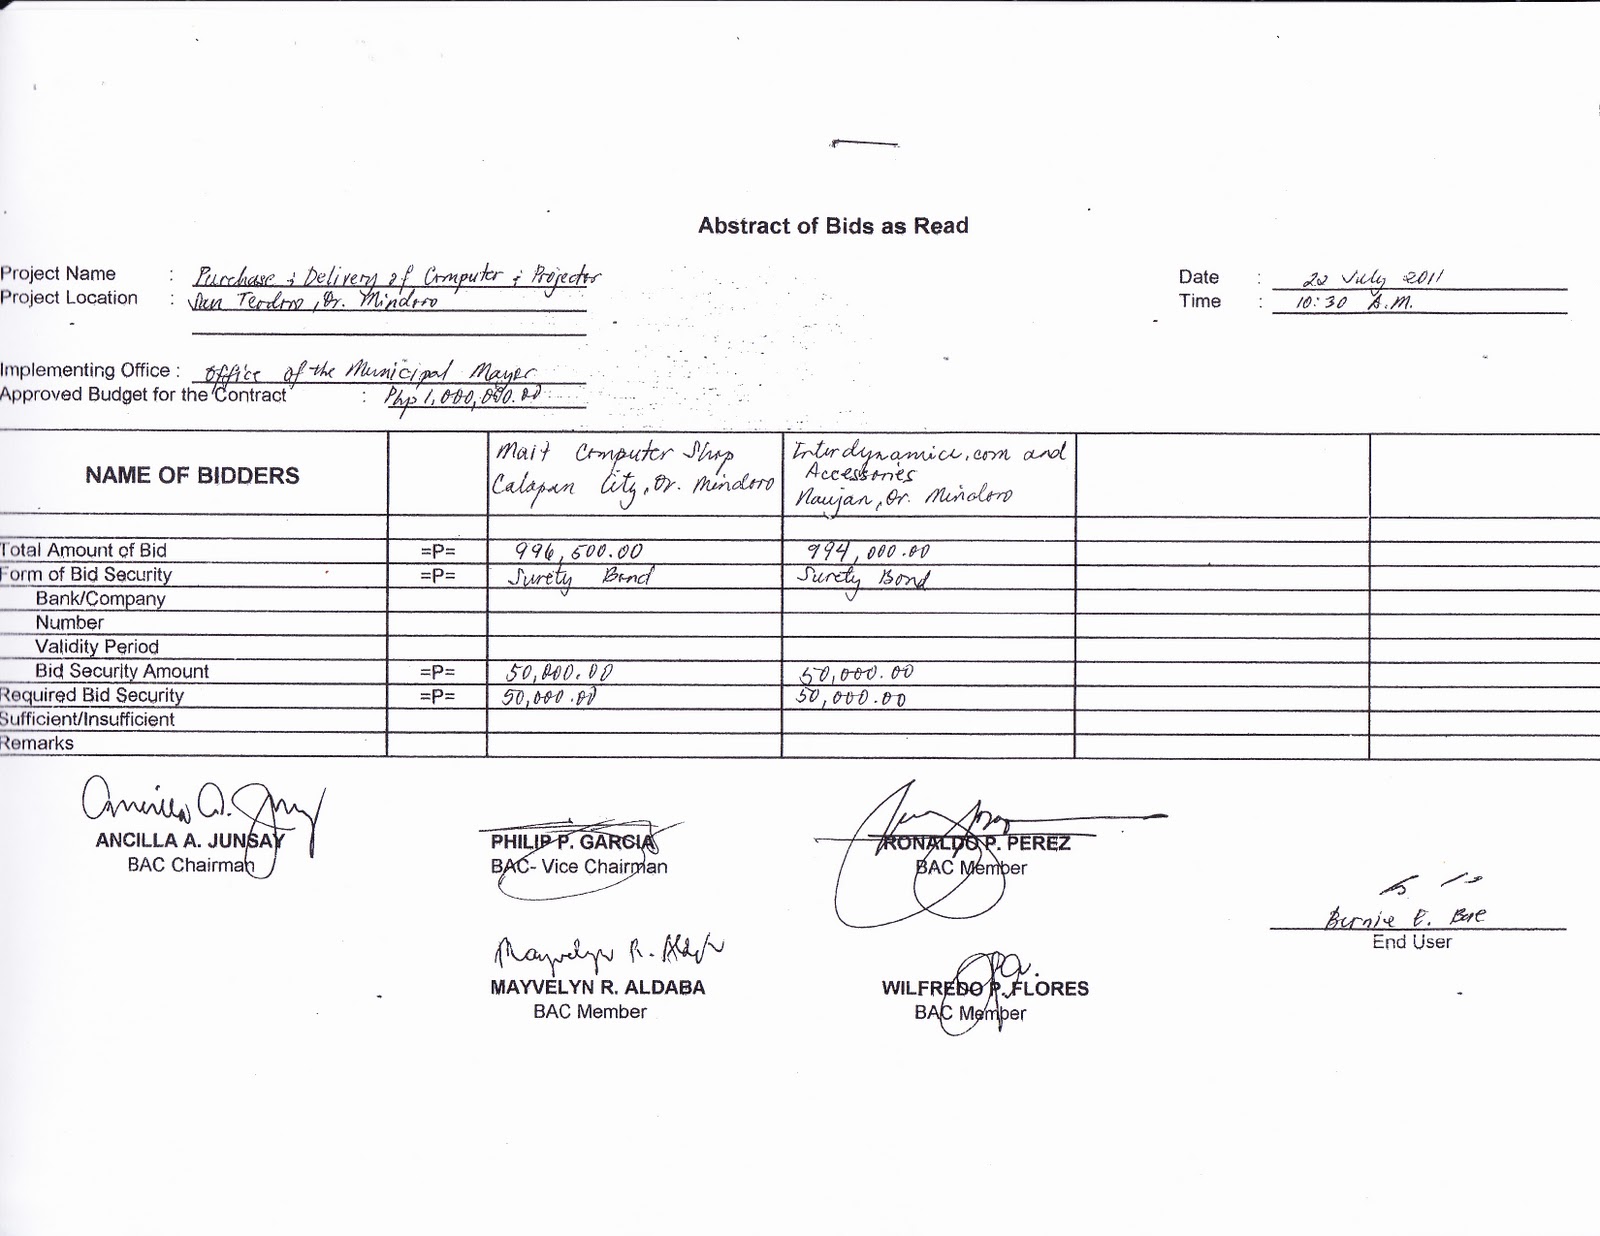 Abstract of Bids as Read
Project Name : Purchase & Delivery of Computer & Projector
Date : 20 July 2011
Project Location : San Teodoro, Or. Mindoro
Time : 10:30 A.M.
Implementing Office : Office of the Municipal Mayor
Approved Budget for the Contract : Php 1,000,000.00
NAME OF BIDDERS
Mait Computer Shop
Calapan City, Or. Mindoro
Interdynamice.com and
Accessories
Naujan, Or. Mindoro
Total Amount of Bid =P= 996,500.00 994,000.00
Form of Bid Security =P= Surety Bond Surety Bond
Bank/Company
Number
Validity Period
Bid Security Amount =P= 50,000.00 50,000.00
Required Bid Security =P= 50,000.00 50,000.00
Sufficient/Insufficient
Remarks
ANCILLA A. JUNSAY
BAC Chairman
PHILIP P. GARCIA
BAC- Vice Chairman
RONALDO P. PEREZ
BAC Member
Bernie E.
End User
Mayvelyn R.
MAYVELYN R. ALDABA
BAC Member
WILFREDO P. FLORES
BAC Member